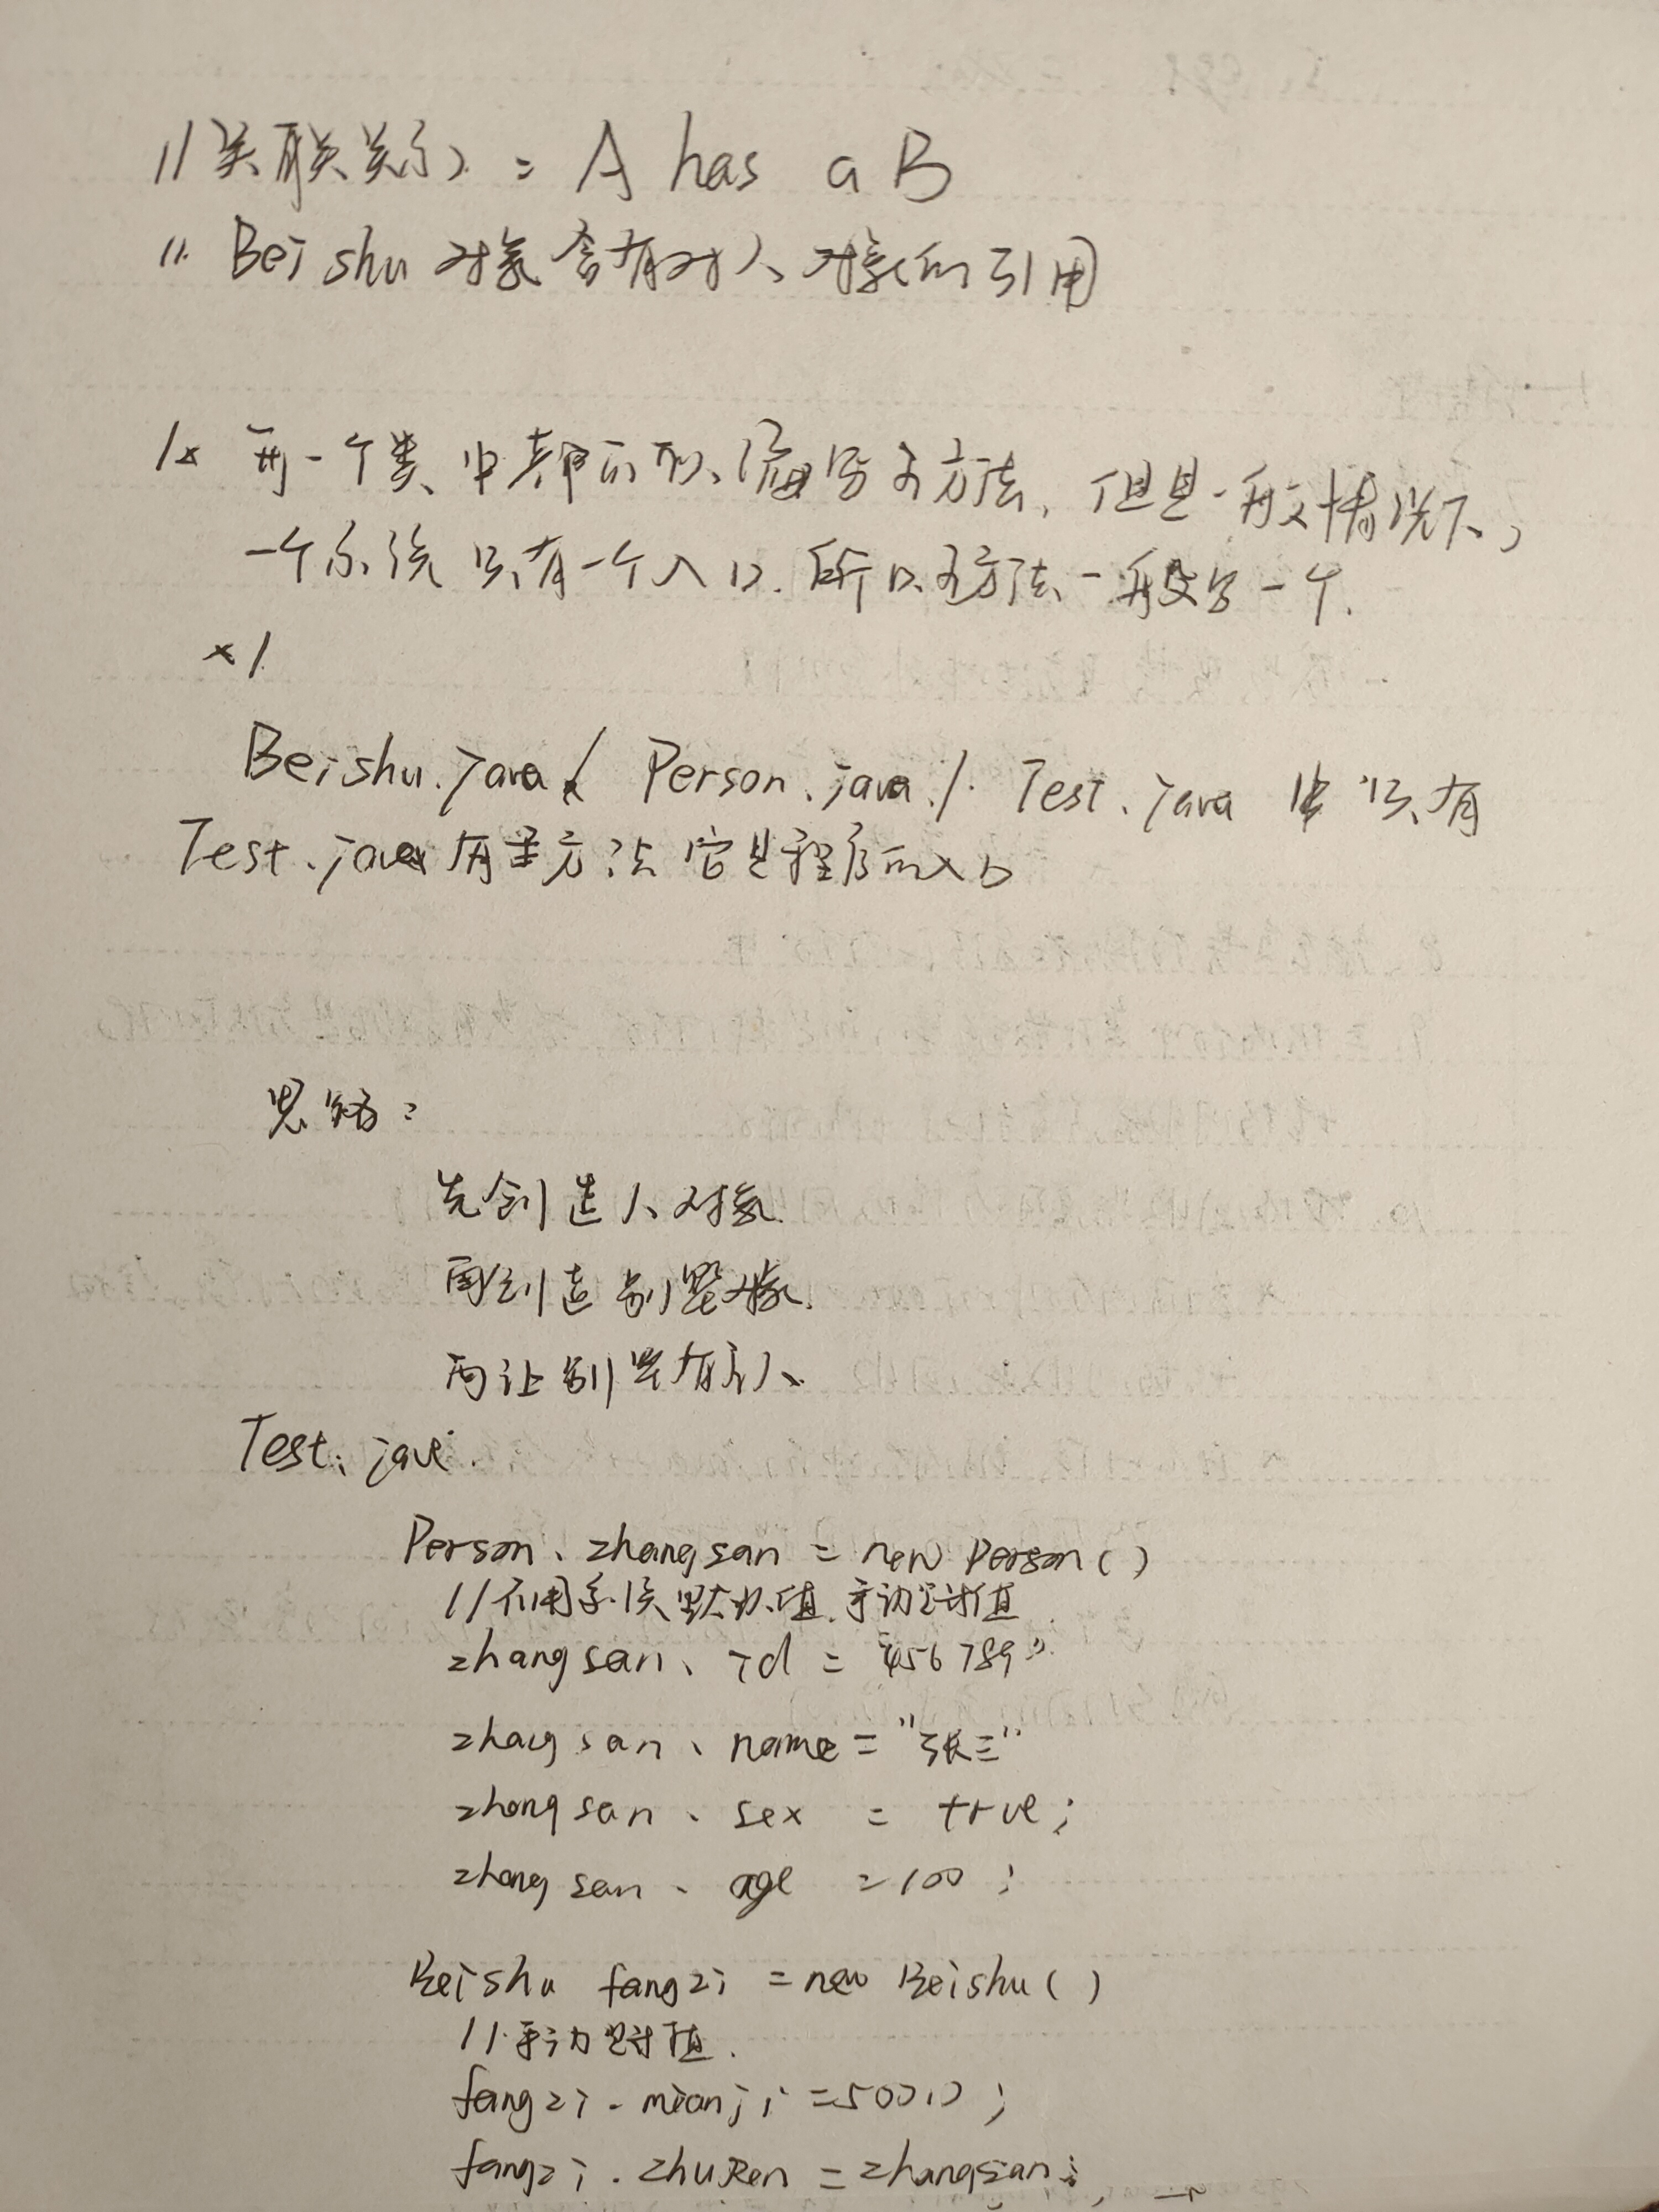 //关联关系：A has a B
// Beishu 对象含有对人对象的引用
/* 每一个类中都可以编写主方法，但是一般情况下，
一个系统只有一个入口. 所以主方法一般写一个.
*/
Beishu.java / Person.java / Test.java 中只有
Test.java 有主方法 它是程序的入口
思路：
先创造人对象.
再创造别墅对象.
再让别墅有主人
Test.java.
Person、zhangsan = new Person()
//不用系统默认值.手动赋值
zhangsan、id = "456789"
zhangsan、name = "张三"
zhangsan、sex = true;
zhangsan、age = 100;
Beishu fangzi = new Beishu()
//手动赋值.
fangzi.mianji = 500.0;
fangzi.zhuRen = zhangsan;